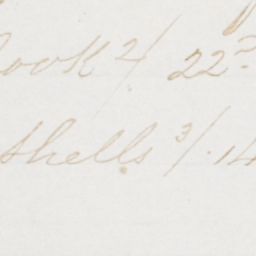 ook 2/ 22
shells 3/. 14